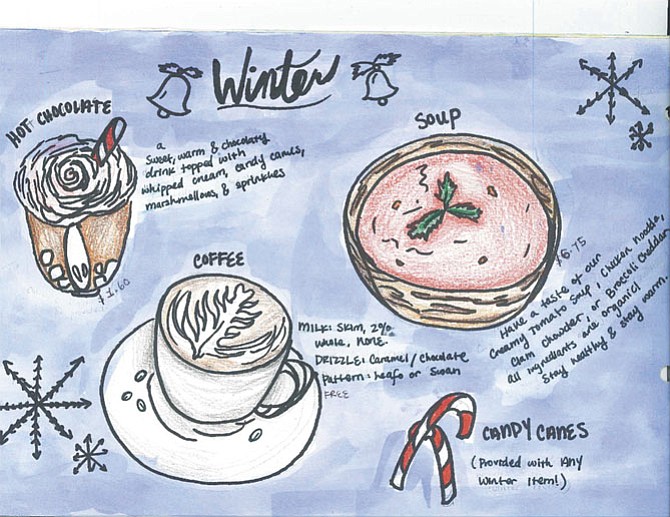 Winter
HOT CHOCOLATE
a
Sweet, warm & chocolaty
drink topped with
whipped cream, candy canes,
marshmallows, & sprinkles
$1.60
SOUP
$6.75
Have a taste of our
creamy Tomato Soup, Chicken Noodle,
Clam Chowder, or Broccoli Cheddar
All ingredients are organic!
Stay healthy & stay warm.
COFFEE
MILK: Skim, 2%
whole, none.
DRIZZLE: Caramel/chocolate
Pattern: Leafs or Swan
FREE
CANDY CANES
(Provided with ANY
Winter Item!)